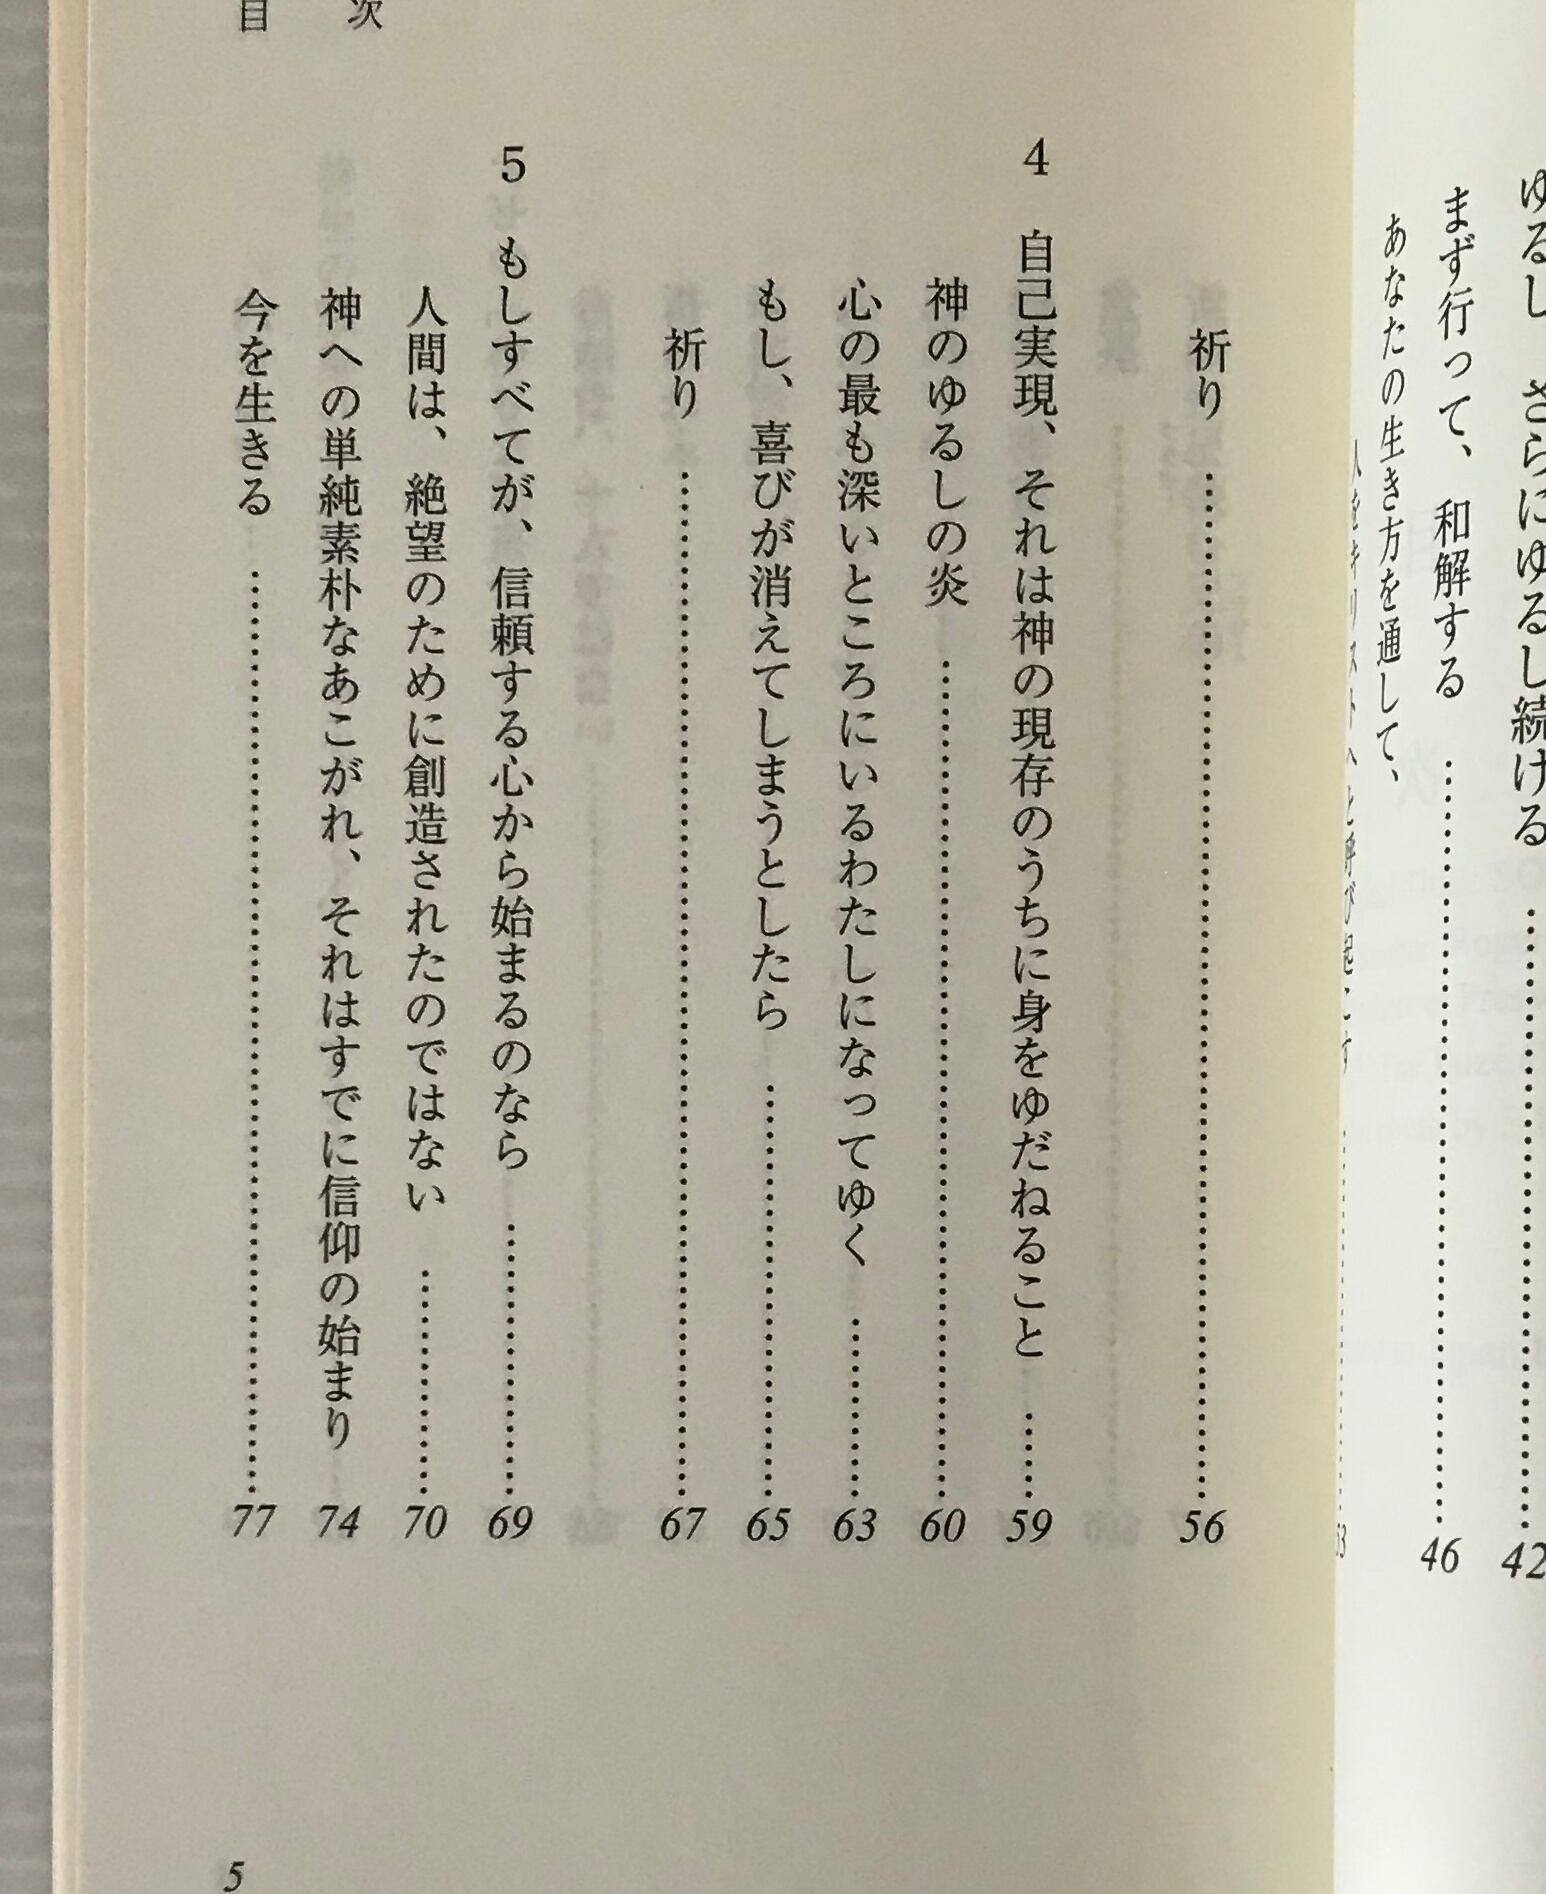 ゆるし、さらにゆるし続ける …… 42
まず行って、和解する …… 46
あなたの生き方を通して、
人をキリストへと呼び起こす …… 53
祈り …… 56
4 自己実現、それは神の現存のうちに身をゆだねること …… 59
神のゆるしの炎 …… 60
心の最も深いところにいるわたしになってゆく …… 63
もし、喜びが消えてしまうとしたら …… 65
祈り …… 67
5 もしすべてが、信頼する心から始まるのなら …… 69
人間は、絶望のために創造されたのではない …… 70
神への単純素朴なあこがれ、それはすでに信仰の始まり …… 74
今を生きる …… 77
目 次
5